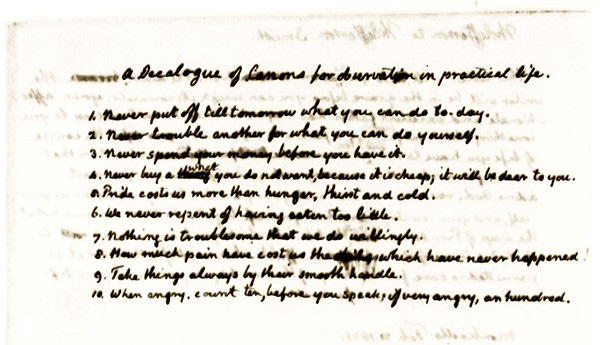 a Decalogue of Canons for observation in practical life.
1. Never put off till tomorrow what you can do to-day.
2. Never trouble another for what you can do yourself.
3. Never spend your money before you have it.
4. Never buy a thing what you do not want, because it is cheap; it will be dear to you.
5. Pride costs us more than hunger, thirst and cold.
6. We never repent of having eaten too little.
7. Nothing is troublesome that we do willingly.
8. How much pain have cost us the evils which have never happened!
9. Take things always by their smooth handle.
10. When angry, count ten, before you speak; if very angry, an hundred.